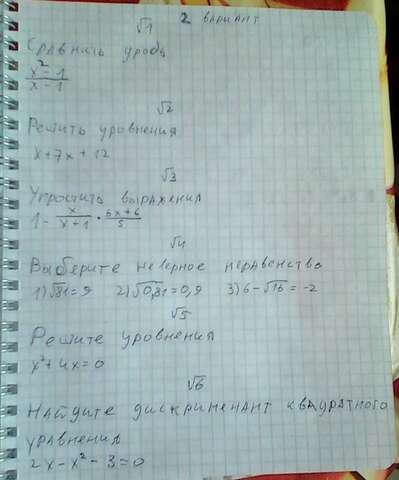 √1 2 вариант
Сравнить дробь
x² - 1
x - 1
√2
Решить уровнения
x + 7x + 12
√3
Упростить выражения
1 - x/x + 1 · 6x + 6/5
√4
Выберите неверное неравенство
1) √81 = 9 2) √0,81 = 0,9 3) 6 - √16 = -2
√5
Решите уровнения
x² + 4x = 0
√6
Найдите дискременант квадратного
уравнения
2x - x² - 3 = 0